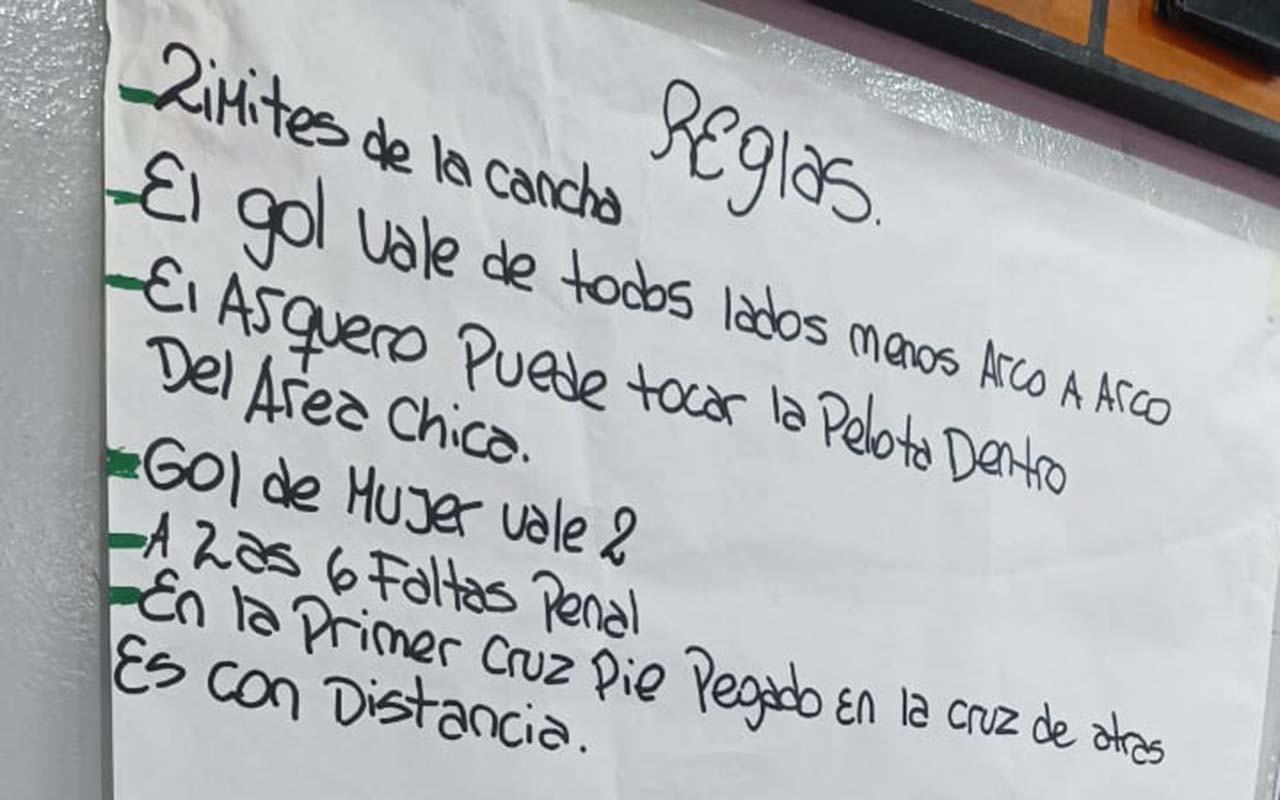 REglas.
-Limites de la cancha
-El gol vale de todos lados menos Arco A Arco
-El Arquero Puede tocar la Pelota Dentro
Del Area Chica.
-Gol de Mujer vale 2
-A Las 6 Faltas Penal
-En la Primer Cruz Pie Pegado En la cruz de atras
Es con Distancia.